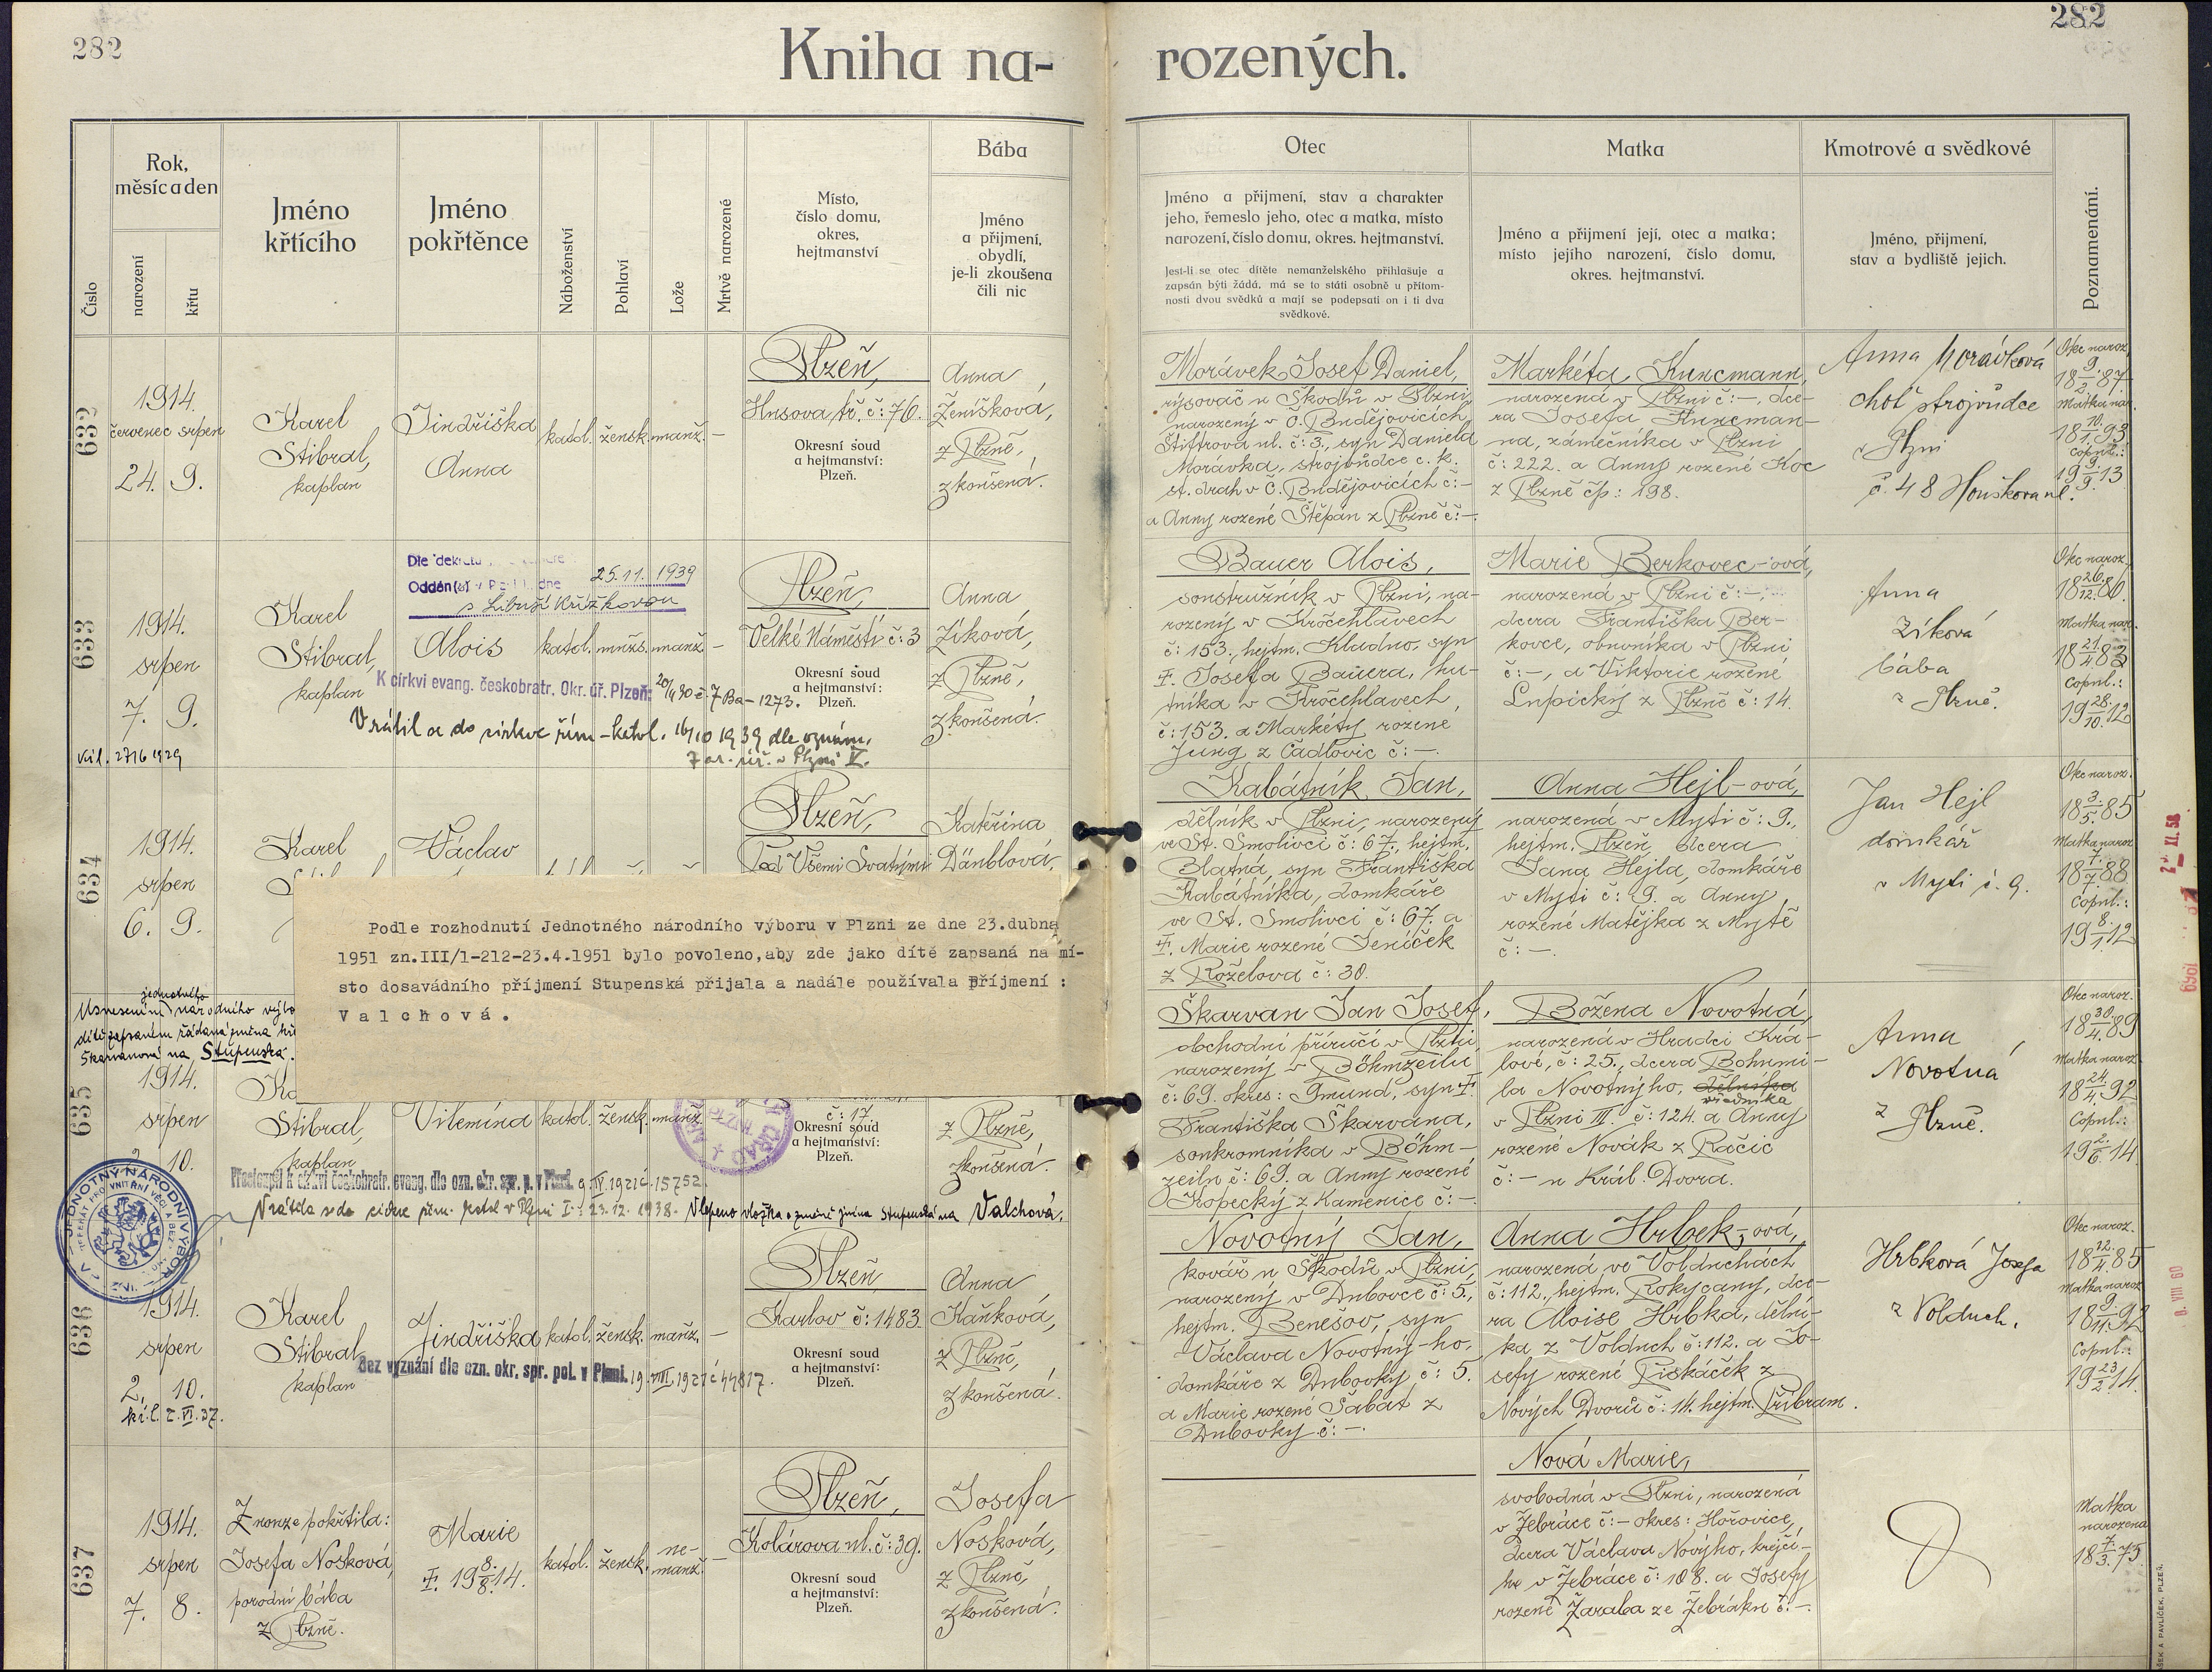 282
282
Kniha na-
rozených.
Číslo
Rok,
měsíc a den
narození
křtu
Jméno
křtícího
Jméno
pokřtěnce
Náboženství
Pohlaví
Lože
Mrtvě narozené
Místo,
číslo domu,
okres,
hejtmanství
Bába
Jméno
a přijmení,
obydlí,
je-li zkoušena
čili nic
Otec
Jméno a přijmení, stav a charakter
jeho, řemeslo jeho, otec a matka, místo
narození, číslo domu, okres. hejtmanství.
Jest-li se otec dítěte nemanželského přihlašuje a
zapsán býti žádá, má se to státi osobně u přítom-
nosti dvou svědků a mají se podepsati on i ti dva
svědkové.
Matka
Jméno a přijmení její, otec a matka;
místo jejího narození, číslo domu,
okres. hejtmanství.
Kmotrové a svědkové
Jméno, přijmení,
stav a bydliště jejich.
Poznamenání.
632
1914.
červenec srpen
24. 9.
Karel
Stibral,
kaplan
Jindřiška
Anna
katol. žensk. manž. –
Plzeň,
Husova tř. č: 76.
Okresní soud
a hejtmanství:
Plzeň.
Anna
Ženíšková,
z Plzně,
zkoušená.
Morávek Josef Daniel,
rýsovač u Škodů v Plzni,
narozený v Č. Budějovicích,
Štiftrova ul. č: 3, syn Daniela
Morávka, strojvůdce c. k.
st. drah v Č. Budějovicích č: –
a Anny rozené Štěpán z Plzně č: –.
Markéta Kuncmann,
narozená v Plzni č: –, dce-
ra Josefa Kuncman-
na, zámečníka v Plzni
č: 222. a Anny rozené Koc
z Plzně čp: 198.
Anna Morávková
choť strojvůdce
v Plzni
č. 48 Houškova ul.
Otec naroz.
18 9/2 87
Matka nar.
18 10/1 93
Copul.:
19 9/9 13
633
1914.
srpen
7. 9.
Karel
Stibral,
kaplan
Oddán(a) dne 25.11. 1939
s Libuší Křížkovou
Alois
katol. mužs. manž. –
Plzeň,
Velké Náměstí č: 3
Okresní soud
a hejtmanství:
Plzeň.
Anna
Zíková,
z Plzně,
zkoušená.
K církvi evang. českobratr. Okr. úř. Plzeň: 20/4 30 č. 7 Ba – 1273.
Vrátil se do církve řím-katol. 16/10 1939 dle oznám.
Far. úř. v Plzni V.
Bauer Alois,
soustružník v Plzni, na-
rozený v Kročehlavech
č: 153., hejtm. Kladno, syn
‡. Josefa Bauera, hu-
tníka v Kročehlavech,
č: 153. a Markéty rozené
Jung z Čadlovic č: –.
Marie Berkovec-ová,
narozená v Plzni č: –,
dcera Františka Ber-
kovce, obuvníka v Plzni
č: –, a Viktorie rozené
Lupický z Plzně č: 14.
Anna
Zíková
bába
z Plzně.
Otec naroz.
18 26/12 86.
Matka nar.
18 21/4 83
Copul.:
19 28/10 12
634
1914.
srpen
6. 9.
Karel
Václav
Plzeň,
Pod Všemi Svatými
Kateřina
Däublová,
Kabátník Jan,
dělník v Plzni, narozený
ve St. Smolivci č: 67., hejtm.
Blatná, syn Františka
Kabátníka, domkáře
ve St. Smolivci č: 67. a
‡. Marie rozené Jeníček
z Roželova č: 30.
Anna Hejl-ová,
narozená v Mýti č: 9.,
hejtm. Plzeň, dcera
Jana Hejla, domkáře
v Mýti č: 9. a Anny
rozené Matějka z Mýtě
č: –.
Jan Hejl
domkář
v Mýti č. 9.
Otec naroz.
18 3/5 85
Matka naroz.
18 7/7 88
Copul.:
19 8/1 12
Podle rozhodnutí Jednotného národního výboru v Plzni ze dne 23.dubna
1951 zn.III/1-212-23.4.1951 bylo povoleno,aby zde jako dítě zapsaná na mí-
sto dosavádního příjmení Stupenská přijala a nadále používala příjmení :
Valchová.
jednotného
Usnesením národního výbo
Škarvanová na Stupenská.
635
1914.
srpen
10.
Ka
Stibral,
kaplan
Vilemína katol. žensk. manž.
č: 17
Okresní soud
a hejtmanství:
Plzeň.
z Plzně,
zkoušená.
Přestoupil k církvi českobratr. evang. dle ozn. okr. spr. p. v Plzni. 9. IV. 1921 č. 15752.
Vrátila se do církve řím. katol. v Plzni I. 23. 12. 1938. Vlepena vložka o změně jména Stupenská na Valchová.
Škarvan Jan Josef,
obchodní příručí v Plzni,
narozený v Böhmzeilu
č: 69. okres: Gmünd, syn ‡.
Františka Škarvana,
soukromníka v Böhm-
zeilu č: 69. a Anny rozené
Kopecký z Kamenice č: –.
Božena Novotná,
narozená v Hradci Krá-
lové, č: 25., dcera Bohumi-
la Novotnýho, dělníka
úředníka
v Plzni III. č: 124. a Anny
rozené Novák z Račic
č: – u Král. Dvora.
Anna
Novotná
z
Plzně.
Otec naroz.
18 30/4 89
Matka naroz.
18 24/4 92
Copul.:
19 2/6 14.
636
1914.
srpen
2. 10.
Karel
Stibral
kaplan
Jindřiška katol. žensk. manž. –
Plzeň,
Karlov č: 1483.
Okresní soud
a hejtmanství:
Plzeň.
Anna
Kaňková,
z Plzně,
zkoušená.
Bez vyznání dle ozn. okr. spr. pol. v Plzni. 19. VIII 1921 č 44817.
Novotný Jan,
kovář u Škodů v Plzni,
narozený v Dubovce č: 5.,
hejtm. Benešov, syn
Václava Novotný-ho,
domkáře z Dubovky č: 5.
a Marie rozené Šabat z
Dubovky č: –.
Anna Hrbek-ová,
narozená ve Volduchách
č: 112., hejtm. Rokycany, dce-
ra Aloise Hrbka, dělní-
ka z Volduch č: 112. a Jo-
sefy rozené Piskáček z
Nových Dvorů č: 14. hejtm. Příbram.
Hrbková Josefa
z Volduch.
Otec naroz.
18 12/4 85
Matka naroz.
18 9/11 92
Copul.:
19 23/2 14.
637
1914.
srpen
7. 8.
Z nouze pokřtila:
Josefa Nosková,
porodní bába
z Plzně.
Marie
‡. 19 8/8 14.
katol. žensk. ne-
manž. –
Plzeň,
Kolárova ul. č: 39.
Okresní soud
a hejtmanství:
Plzeň.
Josefa
Nosková,
z Plzně,
zkoušená.
Nová Marie,
svobodná v Plzni, narozená
v Žebráce č: – okres: Hořovice,
dcera Václava Novýho, krejčí-
ho v Žebráce č: 108. a Josefy
rozené Žaraba ze Žebráku č: –.
Matka
narozena
18 7/3 75.